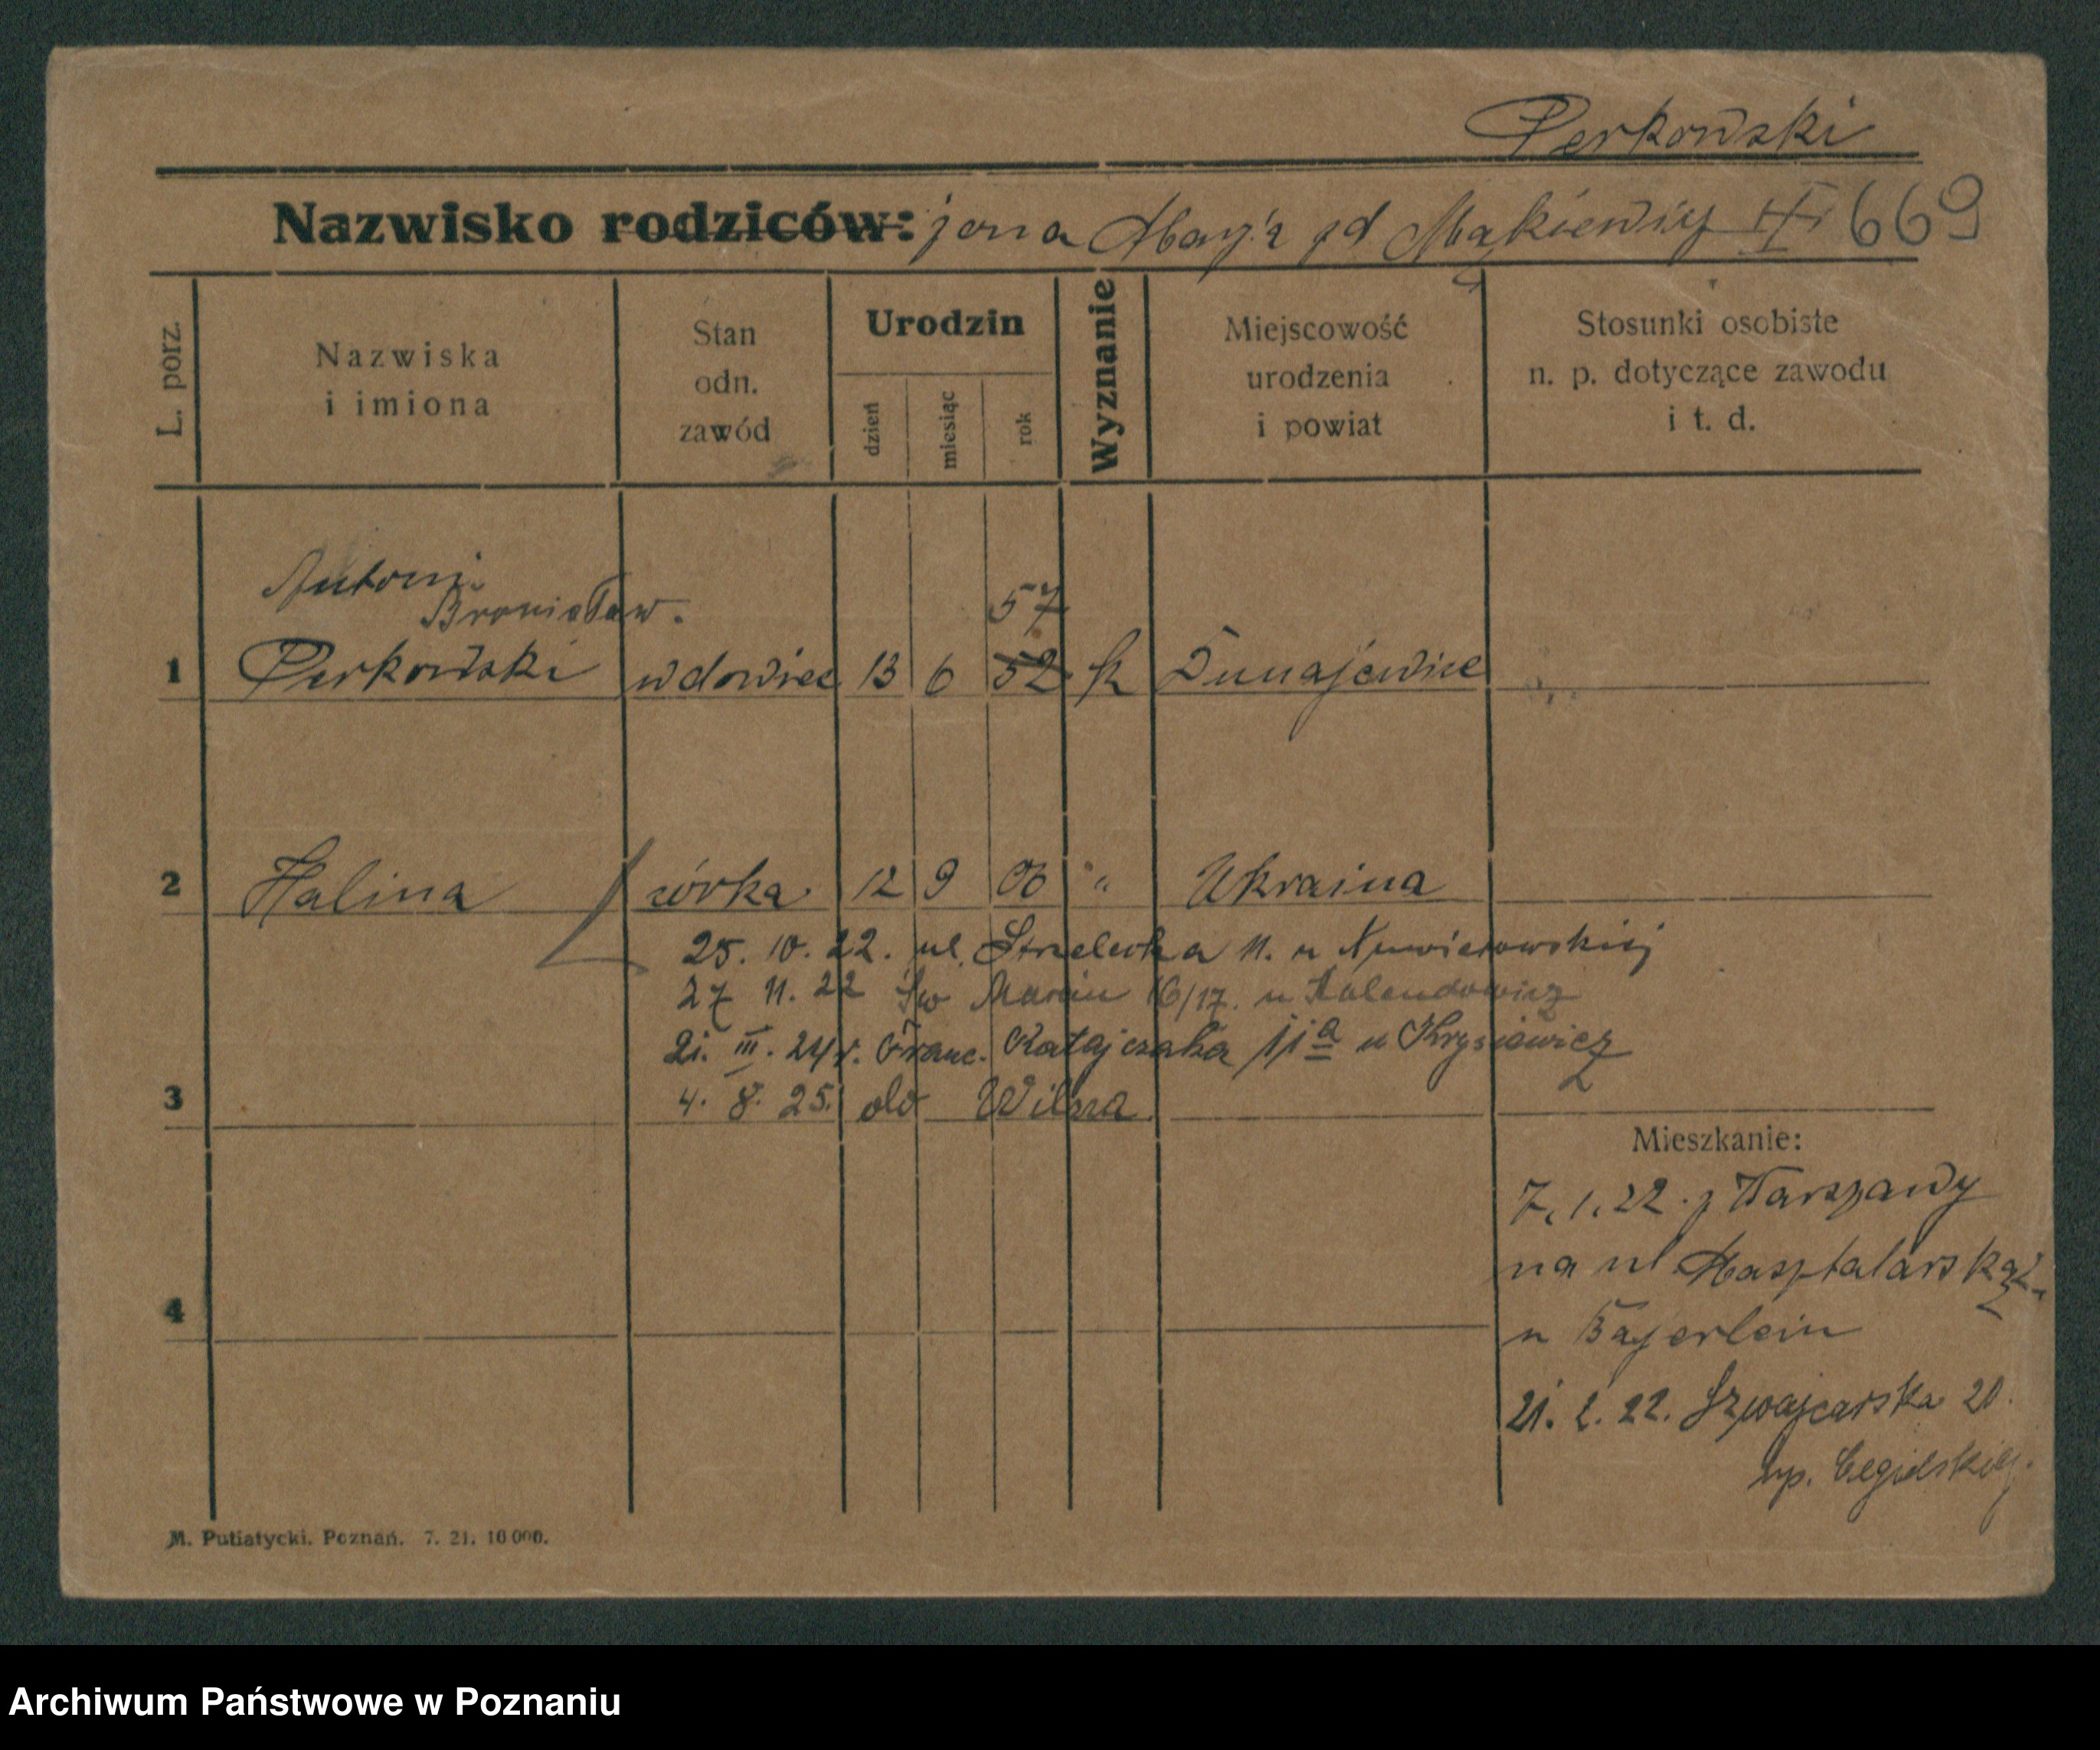 Perkowski
Nazwisko rodziców: żona Marja zd Mąkiewicz 669
L. porz.
Nazwiska
i imiona
Stan
odn.
zawód
Urodzin
dzień
miesiąc
rok
Wyznanie
Miejscowość
urodzenia
i powiat
Stosunki osobiste
n. p. dotyczące zawodu
i t. d.
Antoni
Bronisław.
57
1 Perkowski wdowiec 13 6 52 k Dunajewice
2 Halina córka 12 9 06 " Ukraina
25. 10. 22. ul. Strzelecka 11. u
27 11. 22 Św Marcin 16/17. u
21. III. 24 r. Franc. Ratajczaka 11a u Krysiewicz
3 4. 8. 25. do Wilna
Mieszkanie:
7. 1. 22. z Warszawy
na ul
4
u Bajerlein
21. 2. 22. Szwajcarska 20.
Cegielskiej.
M. Putiatycki. Poznań. 7. 21. 10 000.
Archiwum Państwowe w Poznaniu